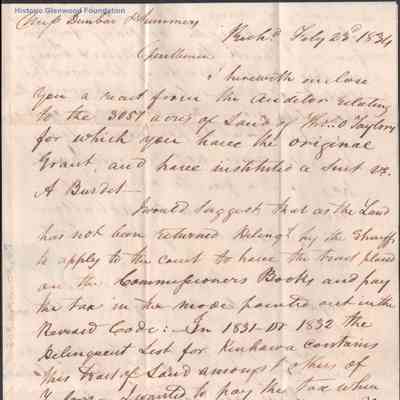 Historic Glenwood Foundation
Messrs Dunbar & Summers
Richd. July 23d 1834
Gentlemen
I herewith enclose
you a receipt from the Auditor relating
to the 3057 acres of Land of Thos. O Taylors
for which you have the original
Grant, and have instituted a Suit vs.
A Burdet
I would suggest that as the Land
has not been returned Delinqt. by the Sheriff
to apply to the court to have the tract placed
on the Commissioners Books and pay
the tax in the mode pointed out in the
Revised Code: In 1831 or 1832 the
Delinquent List for Kenhawa contains
this tract of Land amongst others of
I wanted to pay the tax when